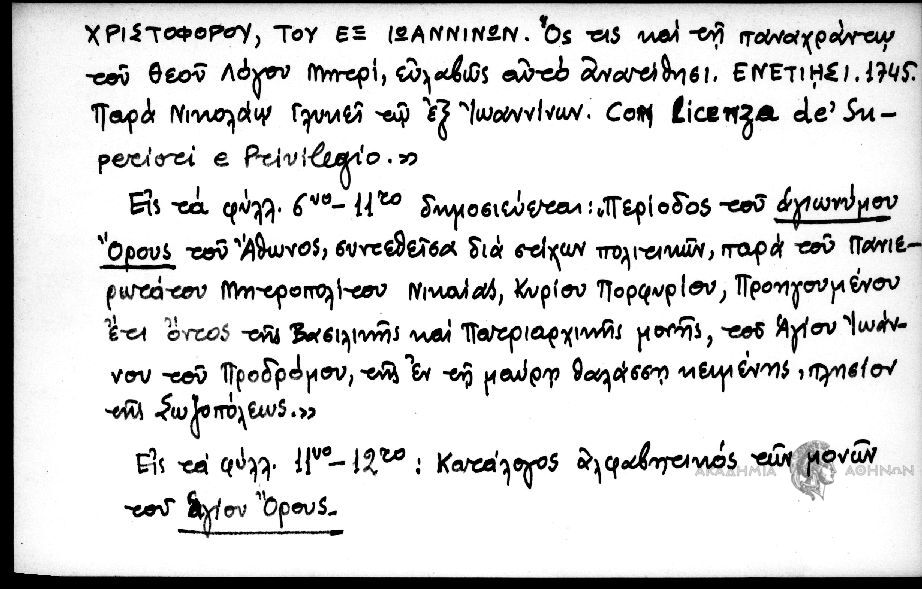 ΧΡΙΣΤΟΦΟΡΟΥ, ΤΟΥ ΕΞ ΙΩΑΝΝΙΝΩΝ. Ὅς τις καί τῇ παναχράντῳ
τοῦ Θεοῦ Λόγου Μητρί, εὐλαβῶς αὐτό ἀνατίθησι. ΕΝΕΤΙΗΣΙ. 1745.
Παρά Νικολάῳ Γλυκεῖ τῷ ἐξ Ἰωαννίνων. Con Licenza de' Su-
periori e Privilegio.»
Εἰς τά φύλλ. 6νο-11το δημοσιεύεται: «Περίοδος τοῦ ἁγιωνύμου
Ὄρους τοῦ Ἄθωνος, συντεθεῖσα διά στίχων πολιτικῶν, παρά τοῦ Πανιε-
ρωτάτου Μητροπολίτου Νικαίας, Κυρίου Πορφυρίου, Προηγουμένου
ἔτι ὄντος τῆς Βασιλικῆς καί Πατριαρχικῆς μονῆς, τοῦ Ἁγίου Ἰωάν-
νου τοῦ Προδρόμου, τῆς ἐν τῇ μαύρῃ θαλάσσῃ κειμένης, πλησίον
τῆς Σωζοπόλεως.»
Εἰς τά φύλλ. 11νο-12το: Κατάλογος ἀλφαβητικός τῶν μονῶν
τοῦ Ἁγίου Ὄρους.-
ΑΚΑΔΗΜΙΑ ΑΘΗΝΩΝ